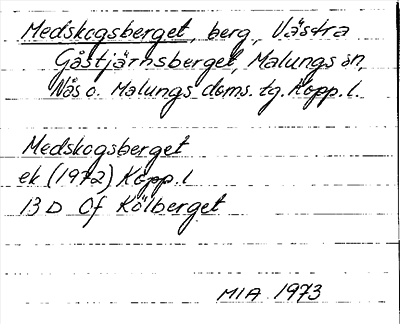 Medskogsberget, berg, Västra
Gåstjärnsberget, Malungs sn,
Nås o. Malungs doms. tg. Kopp. l.
Medskogsberget
ek (1972) Kopp. l
13 D Of Kölberget
MIA 1973